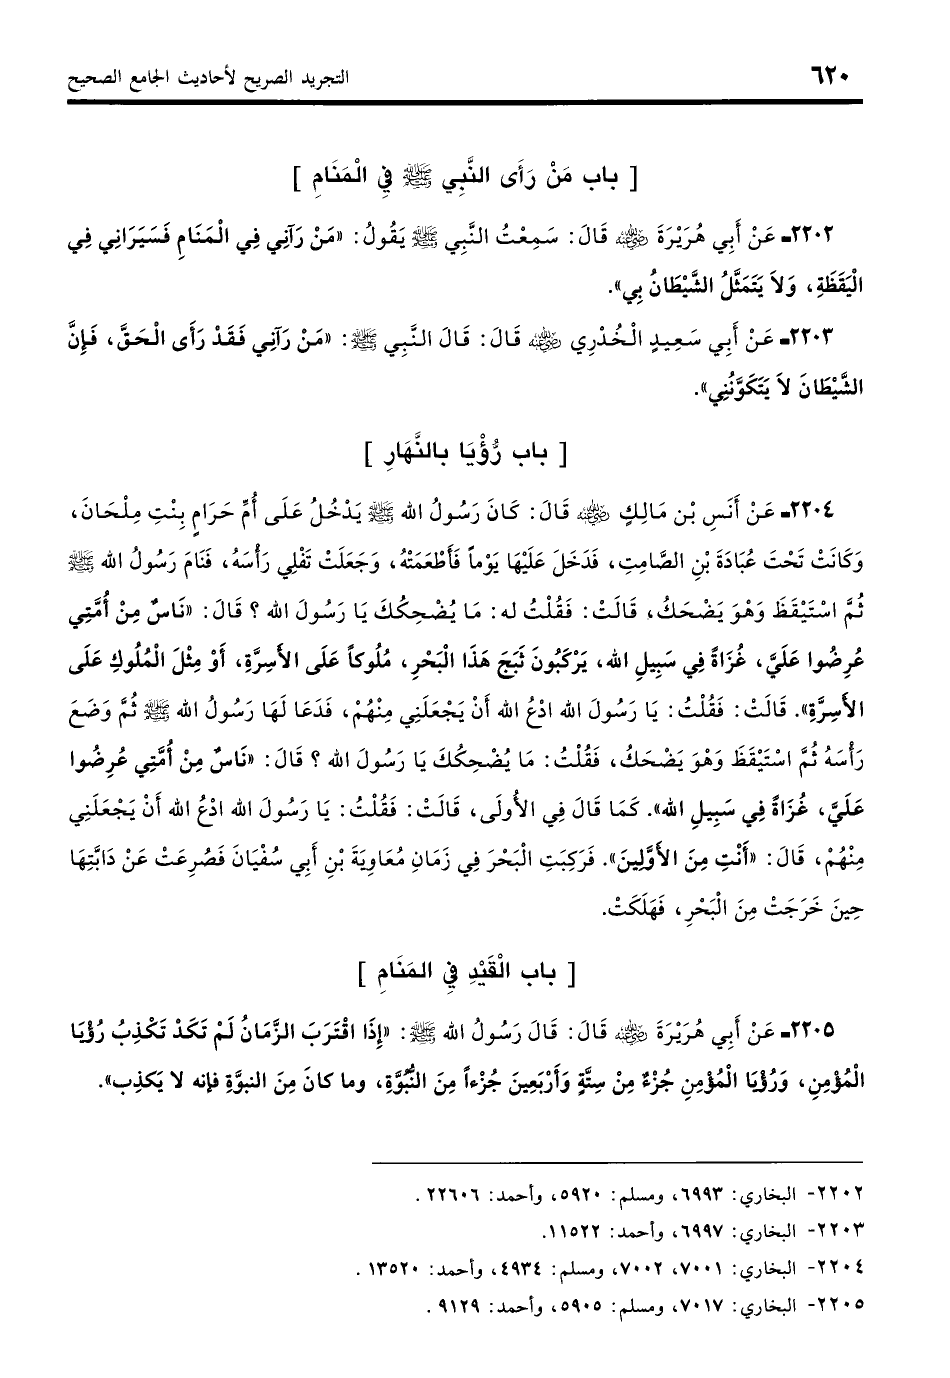 ٦٢٠
التجريد الصريح لأحاديث الجامع الصحيح
[ باب مَنْ رَأَى النَّبِي ﷺ فِي الْمَنَامِ ]
٢٢٠٢ـ عَنْ أَبِي هُرَيْرَةَ رضي الله عنه قَالَ: سَمِعْتُ النَّبِي ﷺ يَقُولُ: «مَنْ رَآنِي فِي الْمَنَامِ فَسَيَرَانِي فِي
الْيَقَظَةِ، وَلاَ يَتَمَثَّلُ الشَّيْطَانُ بِي».
٢٢٠٣ـ عَنْ أَبِي سَعِيدٍ الْخُدْرِي رضي الله عنه قَالَ: قَالَ النَّبِي ﷺ: «مَنْ رَآنِي فَقَدْ رَأَى الْحَقَّ، فَإِنَّ
الشَّيْطَانَ لاَ يَتَكَوَّنُنِي».
[ باب رُؤْيَا بالنَّهَارِ ]
٢٢٠٤ـ عَنْ أَنَسِ بْنِ مَالِكٍ رضي الله عنه قَالَ: كَانَ رَسُولُ الله ﷺ يَدْخُلُ عَلَى أُمِّ حَرَامٍ بِنْتِ مِلْحَانَ،
وَكَانَتْ تَحْتَ عُبَادَةَ بْنِ الصَّامِتِ، فَدَخَلَ عَلَيْهَا يَوْماً فَأَطْعَمَتْهُ، وَجَعَلَتْ تَفْلِي رَأْسَهُ، فَنَامَ رَسُولُ الله ﷺ
ثُمَّ اسْتَيْقَظَ وَهْوَ يَضْحَكُ، قَالَتْ: فَقُلْتُ له: مَا يُضْحِكُكَ يَا رَسُولَ الله ؟ قَالَ: «نَاسٌ مِنْ أُمَّتِي
عُرِضُوا عَلَيَّ، غُزَاةً فِي سَبِيلِ الله، يَرْكَبُونَ ثَبَجَ هَذَا الْبَحْرِ، مُلُوكاً عَلَى الأَسِرَّةِ، أَوْ مِثْلَ الْمُلُوكِ عَلَى
الأَسِرَّةِ». قَالَتْ: فَقُلْتُ: يَا رَسُولَ الله ادْعُ الله أَنْ يَجْعَلَنِي مِنْهُمْ، فَدَعَا لَهَا رَسُولُ الله ﷺ ثُمَّ وَضَعَ
رَأْسَهُ ثُمَّ اسْتَيْقَظَ وَهْوَ يَضْحَكُ، فَقُلْتُ: مَا يُضْحِكُكَ يَا رَسُولَ الله ؟ قَالَ: «نَاسٌ مِنْ أُمَّتِي عُرِضُوا
عَلَيَّ، غُزَاةً فِي سَبِيلِ الله». كَمَا قَالَ فِي الأُولَى، قَالَتْ: فَقُلْتُ: يَا رَسُولَ الله ادْعُ الله أَنْ يَجْعَلَنِي
مِنْهُمْ، قَالَ: «أَنْتِ مِنَ الأَوَّلِينَ». فَرَكِبَتِ الْبَحْرَ فِي زَمَانِ مُعَاوِيَةَ بْنِ أَبِي سُفْيَانَ فَصُرِعَتْ عَنْ دَابَّتِهَا
حِينَ خَرَجَتْ مِنَ الْبَحْرِ، فَهَلَكَتْ.
[ باب الْقَيْدِ فِي المَنَامِ ]
٢٢٠٥ـ عَنْ أَبِي هُرَيْرَةَ رضي الله عنه قَالَ: قَالَ رَسُولُ الله ﷺ: «إِذَا اقْتَرَبَ الزَّمَانُ لَمْ تَكَدْ تَكْذِبُ رُؤْيَا
الْمُؤْمِنِ، وَرُؤْيَا الْمُؤْمِنِ جُزْءٌ مِنْ سِتَّةٍ وَأَرْبَعِينَ جُزْءاً مِنَ النُّبُوَّةِ، وما كانَ مِنَ النبوَّةِ فإنه لا يَكذِب».
٢٢٠٢- البخاري: ٦٩٩٣، ومسلم: ٥٩٢٠، وأحمد: ٢٢٦٠٦ .
٢٢٠٣- البخاري: ٦٩٩٧، وأحمد: ١١٥٢٢.
٢٢٠٤- البخاري: ٧٠٠١، ٧٠٠٢، ومسلم: ٤٩٣٤، وأحمد: ١٣٥٢٠ .
٢٢٠٥- البخاري: ٧٠١٧، ومسلم: ٥٩٠٥، وأحمد: ٩١٢٩ .